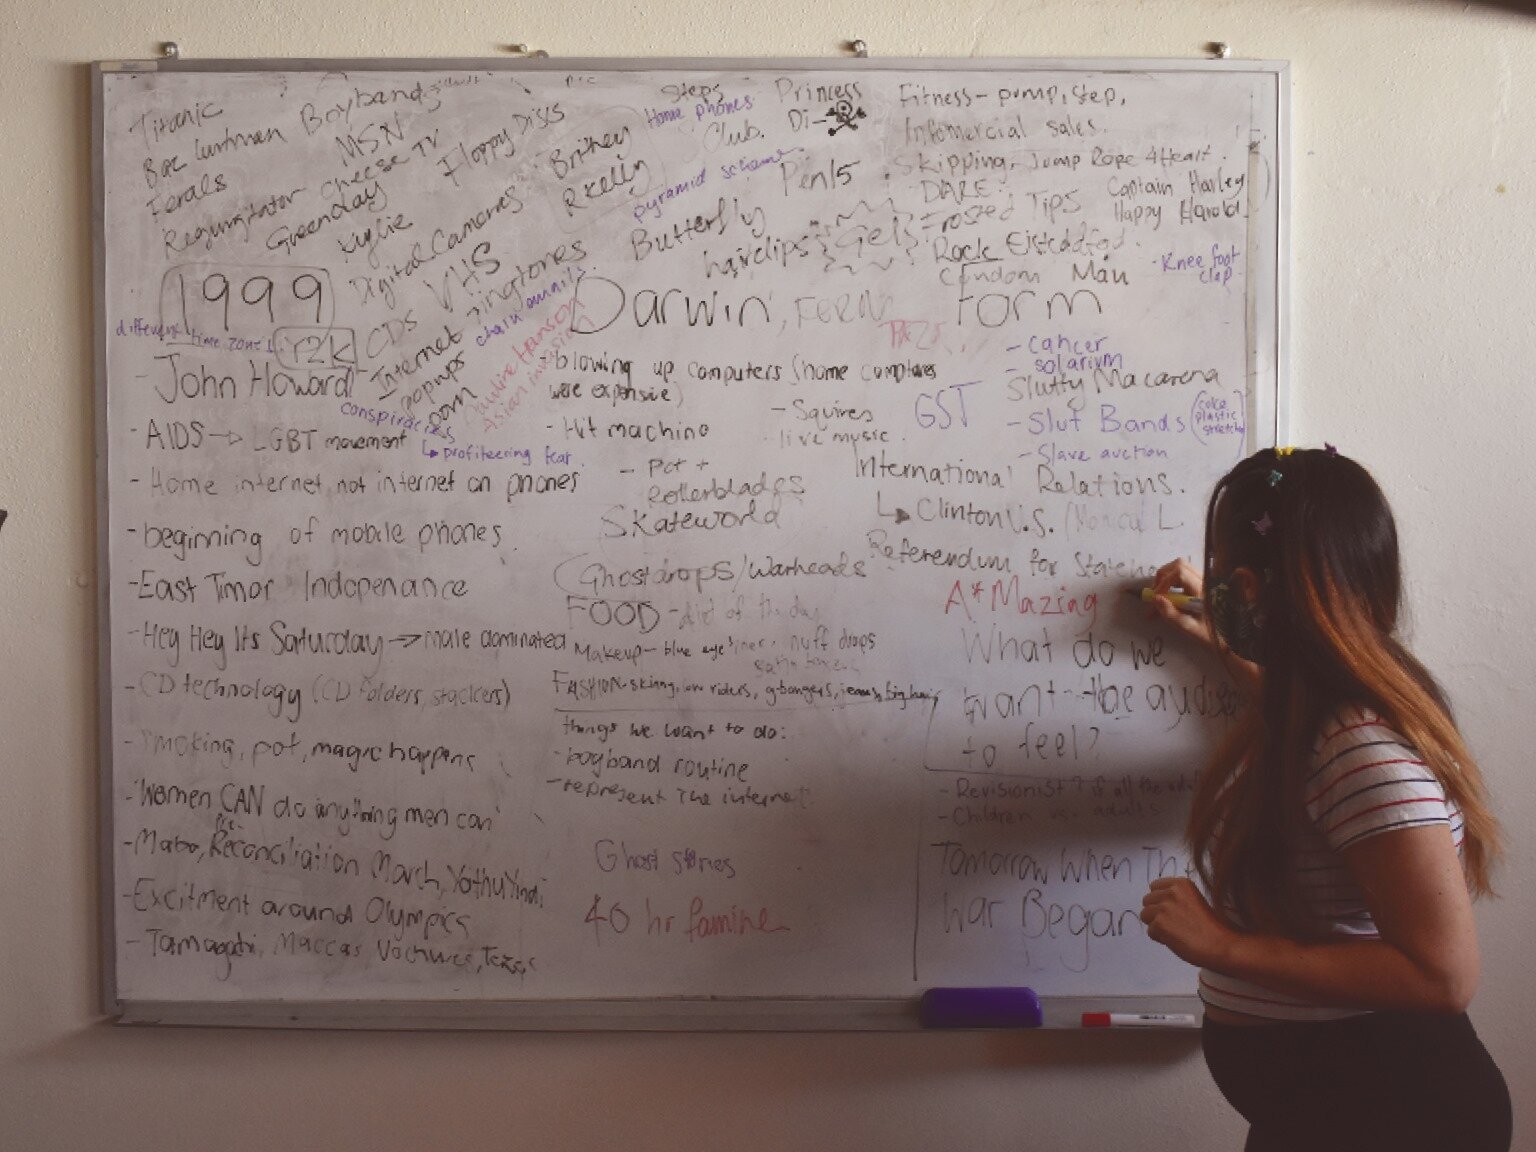 Titanic
Baz Luhrman
Ferals
Regurgitator
Greenday
Kylie
Boybands
MSN
Cheese TV
Floppy Discs
Digital Cameras
VHS
CDS
Britney
R Kelly
Steps
Home phones
Club.
Princess
Di -
pyramid scheme
Pen15
Butterfly
hairclips
Gel
Fitness - pump, step,
Infomercial sales.
Skipping, Jump Rope 4 Heart.
DARE
Frosted Tips
Captain Harley
Happy Harold
Rock Eistedfod.
Condom Man
Knee foot
clap
1999
different time zones
Y2K
ringtones
chain emails
Internet
popups
porn
Pauline Hanson
Asian invasion
- John Howard
conspiracies
↳ profiteering fear.
- AIDS → LGBT movement
- Home internet, not internet on phones
- beginning of mobile phones
- East Timor Indepenance
- Hey Hey Its Saturday → male dominated
- CD technology (CD folders, stackers)
- Smoking, pot, magic happens
- 'Women CAN do anything men can'
Pre-
- Mabo, Reconciliation March, Yothu Yindi
- Excitment around Olympics
- Tamagotchi, Maccas Vochures, Tazos
Darwin
- blowing up computers (home computers
were expensive)
- Hit machine
- Squires
live music.
- Pct +
Rollerblades
Skateworld
Ghostdrops/warheads
FOOD - diet of the day
Makeup - blue eye liner, nuff drops
FASHION - skinny, low riders, g-bangers, jeans, big hair
things we want to do:
- boyband routine
- represent the internet
Ghost stories
40 hr famine
Form
- cancer
- solarium
Slutty Macarena
GST
- Slut Bands (coke
plastic
stretch)
- Slave auction
International Relations.
↳ Clinton U.S. (Monica L
Referendum for
A*Mazing
What do we
want the
to feel?
- Revisionist?
- Children vs. adults
Tomorrow When The
War Began